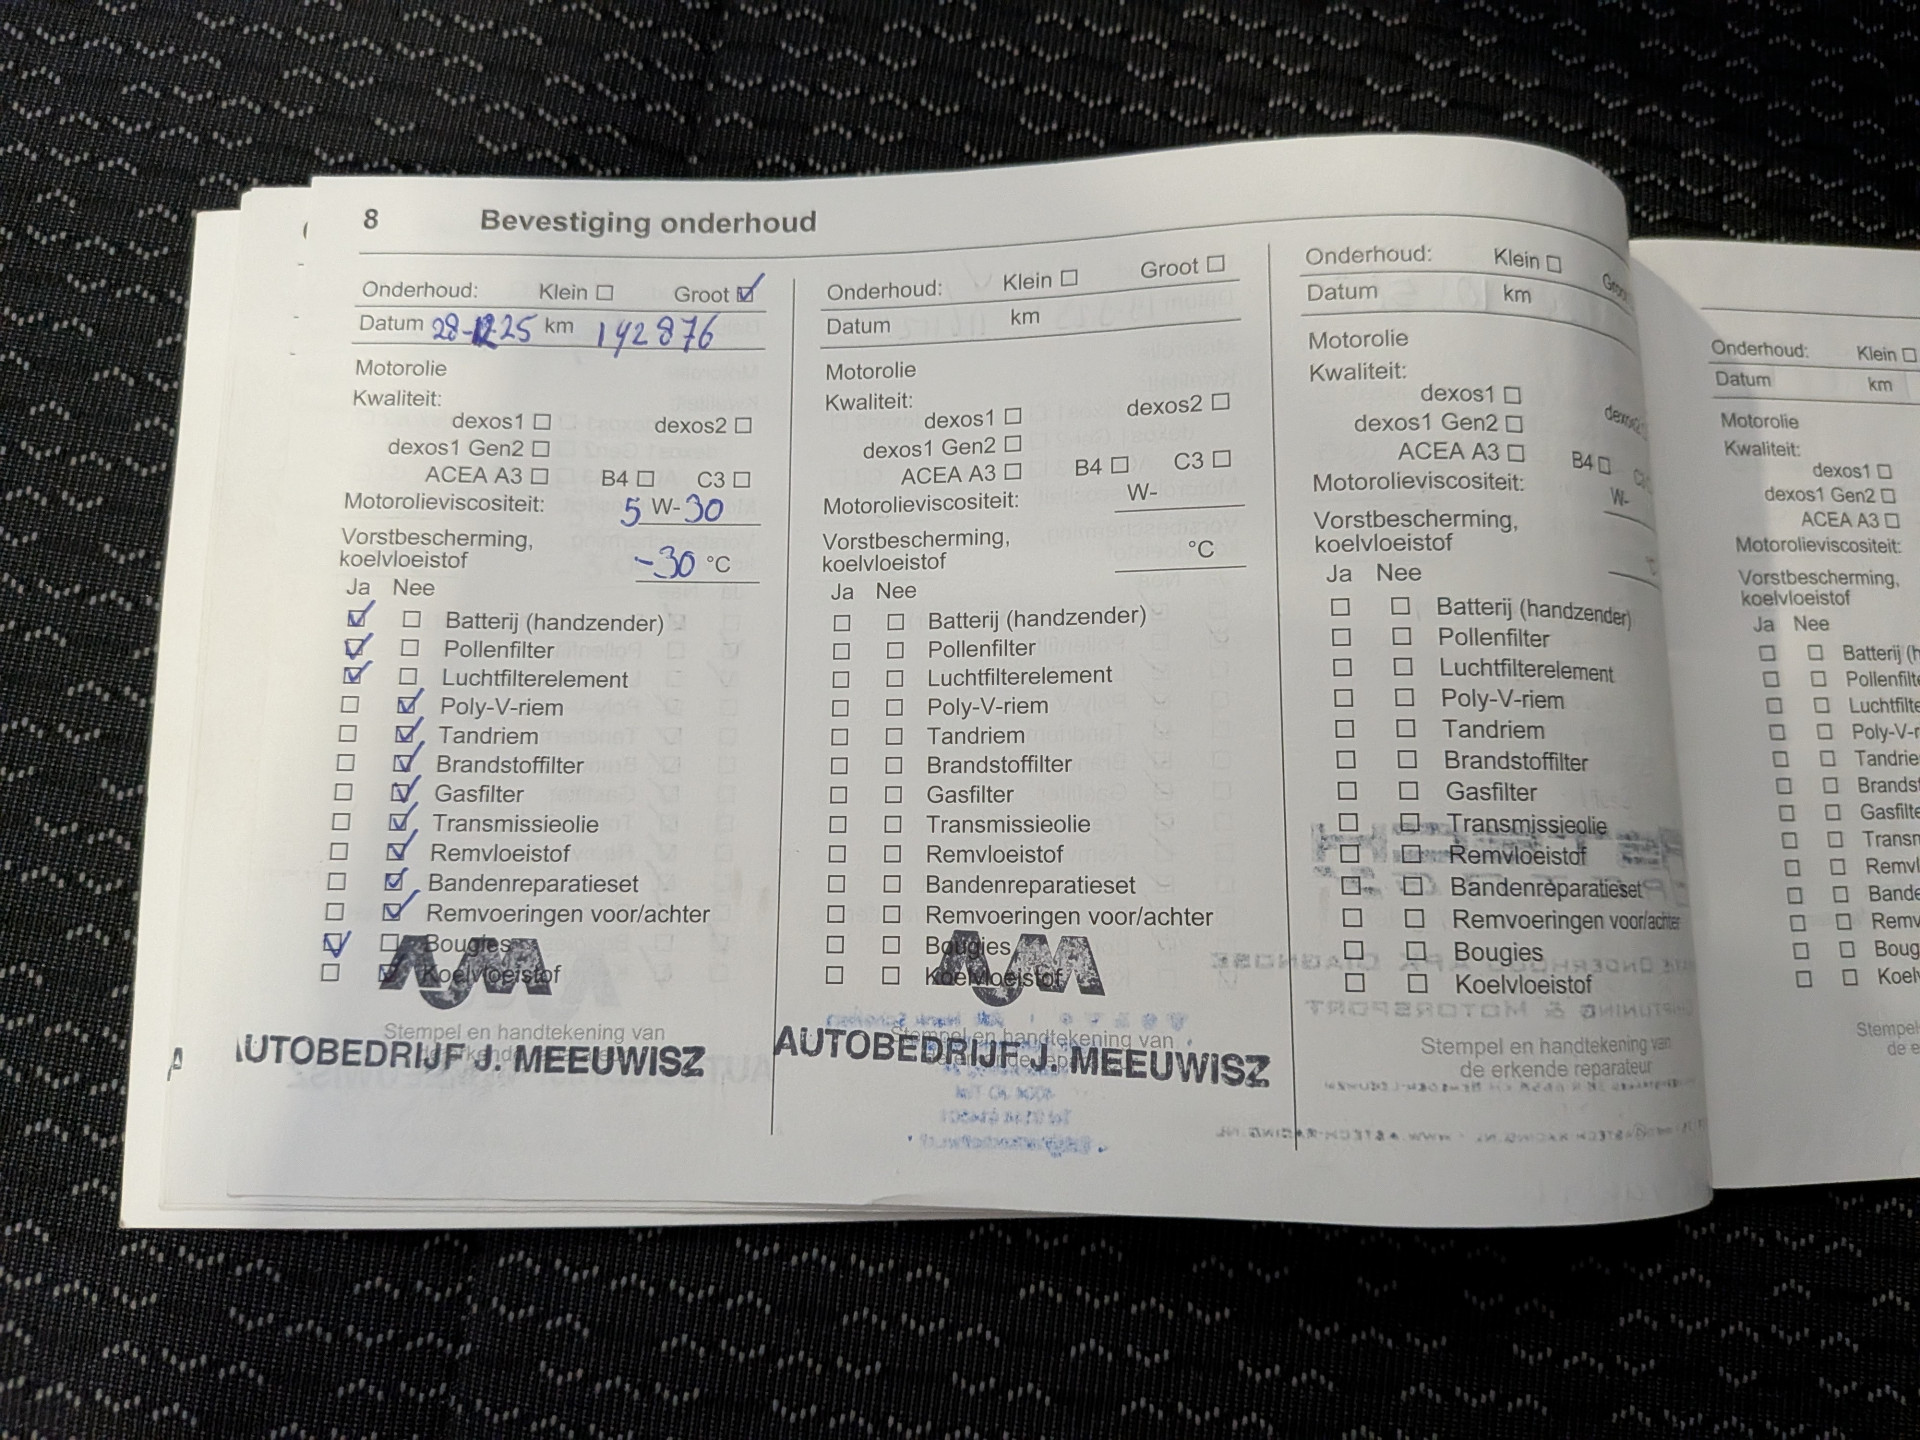 8 Bevestiging onderhoud
Onderhoud: Klein Groot
Datum 28-12-25 km 142876
Motorolie
Kwaliteit:
dexos1 dexos2
dexos1 Gen2
ACEA A3 B4 C3
Motorolieviscositeit: 5 W-30
Vorstbescherming,
koelvloeistof -30 °C
Ja Nee
Batterij (handzender)
Pollenfilter
Luchtfilterelement
Poly-V-riem
Tandriem
Brandstoffilter
Gasfilter
Transmissieolie
Remvloeistof
Bandenreparatieset
Remvoeringen voor/achter
Bougies
Koelvloeistof
Stempel en handtekening van
AUTOBEDRIJF J. MEEUWISZ
Onderhoud: Klein Groot
Datum km
Motorolie
Kwaliteit:
dexos1 dexos2
dexos1 Gen2
ACEA A3 B4 C3
Motorolieviscositeit: W-
Vorstbescherming,
koelvloeistof °C
Ja Nee
Batterij (handzender)
Pollenfilter
Luchtfilterelement
Poly-V-riem
Tandriem
Brandstoffilter
Gasfilter
Transmissieolie
Remvloeistof
Bandenreparatieset
Remvoeringen voor/achter
Bougies
Koelvloeistof
Stempel en handtekening van
AUTOBEDRIJF J. MEEUWISZ
Onderhoud: Klein Groot
Datum km
Motorolie
Kwaliteit:
dexos1 dexos2
dexos1 Gen2
ACEA A3 B4
Motorolieviscositeit: W-
Vorstbescherming,
koelvloeistof
Ja Nee
Batterij (handzender)
Pollenfilter
Luchtfilterelement
Poly-V-riem
Tandriem
Brandstoffilter
Gasfilter
Transmissieolie
Remvloeistof
Bandenreparatieset
Remvoeringen voor/achter
Bougies
Koelvloeistof
Stempel en handtekening van
de erkende reparateur
Onderhoud: Klein
Datum km
Motorolie
Kwaliteit:
dexos1
dexos1 Gen2
ACEA A3
Motorolieviscositeit:
Vorstbescherming,
koelvloeistof
Ja Nee
Batterij (h
Pollenfilte
Luchtfilte
Poly-V-r
Tandrie
Brandst
Gasfilte
Transm
Remvl
Bande
Remv
Boug
Koelv
Stempel
de e